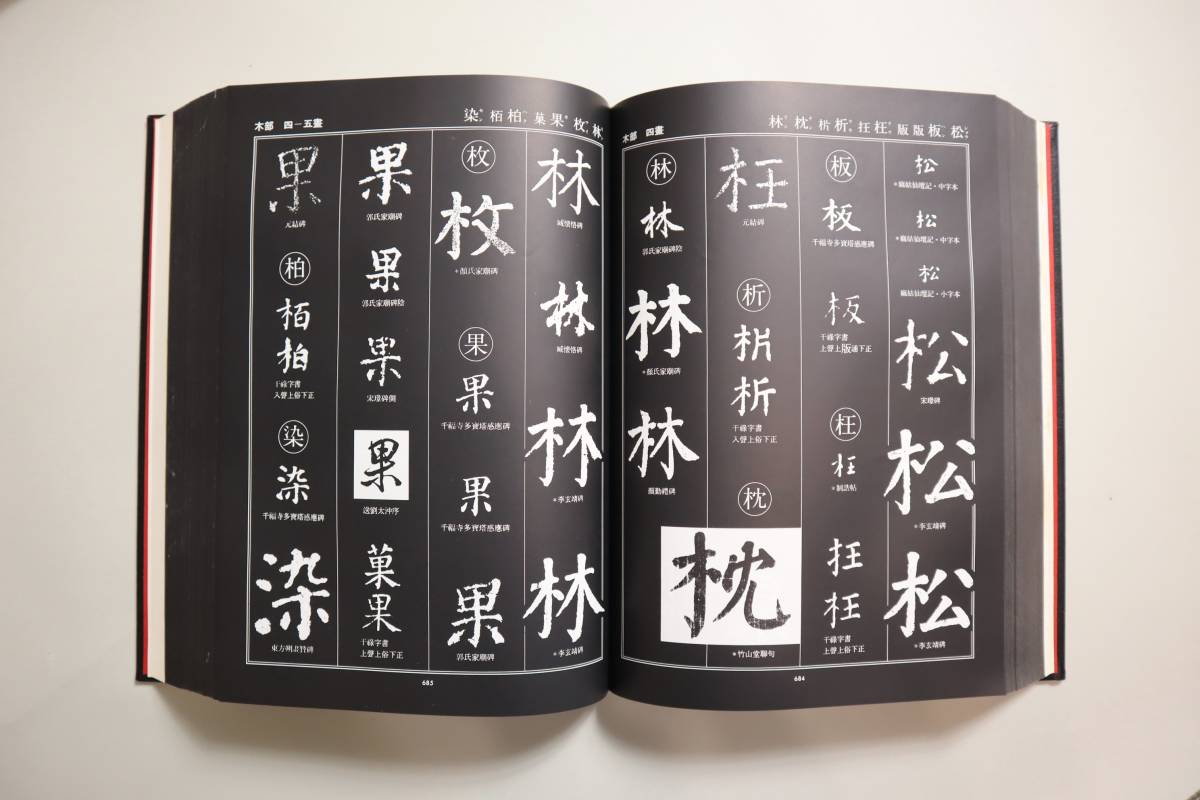 木部 四畫
林 枕 析 抂 枉 版 板 松
松
*麻姑仙壇記・中字本
松
*麻姑仙壇記・中字本
松
麻姑仙壇記・小字本
松
宋璟碑
松
*李玄靖碑
松
*李玄靖碑
板
板
千福寺多寶塔感應碑
板
干祿字書
上聲上版通下正
枉
枉
*制誥帖
抂
枉
干祿字書
上聲上俗下正
枉
元結碑
析
析
干祿字書
入聲上俗下正
枕
枕
*竹山堂聯句
林
林
郭氏家廟碑陰
林
*顏氏家廟碑
林
顏勤禮碑
684
木部 四－五畫
染 栢 柏 菓 果 枚 林
林
臧懷恪碑
林
臧懷恪碑
林
*李玄靖碑
林
*李玄靖碑
枚
枚
*顏氏家廟碑
果
果
千福寺多寶塔感應碑
果
千福寺多寶塔感應碑
果
郭氏家廟碑
果
郭氏家廟碑
果
郭氏家廟碑陰
果
宋璟碑側
果
送劉太沖序
菓
果
干祿字書
上聲上俗下正
果
元結碑
柏
栢
柏
干祿字書
入聲上俗下正
染
染
千福寺多寶塔感應碑
染
東方朔畫賛碑
685